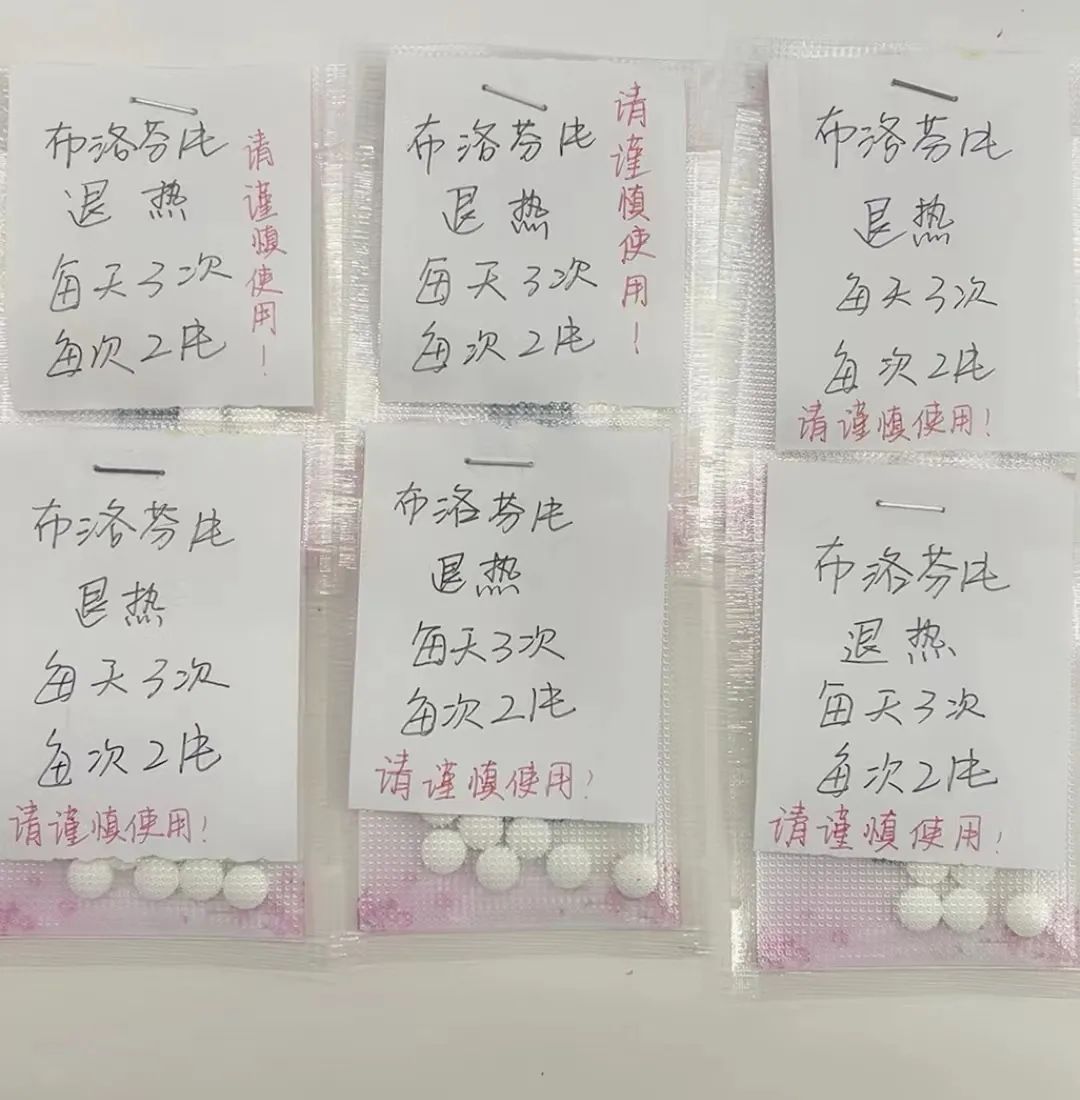 布洛芬片
退热
每天3次
每次2片
请谨慎使用!
布洛芬片
退热
每天3次
每次2片
请谨慎使用!
布洛芬片
退热
每天3次
每次2片
请谨慎使用!
布洛芬片
退热
每天3次
每次2片
请谨慎使用!
布洛芬片
退热
每天3次
每次2片
请谨慎使用!
布洛芬片
退热
每天3次
每次2片
请谨慎使用!